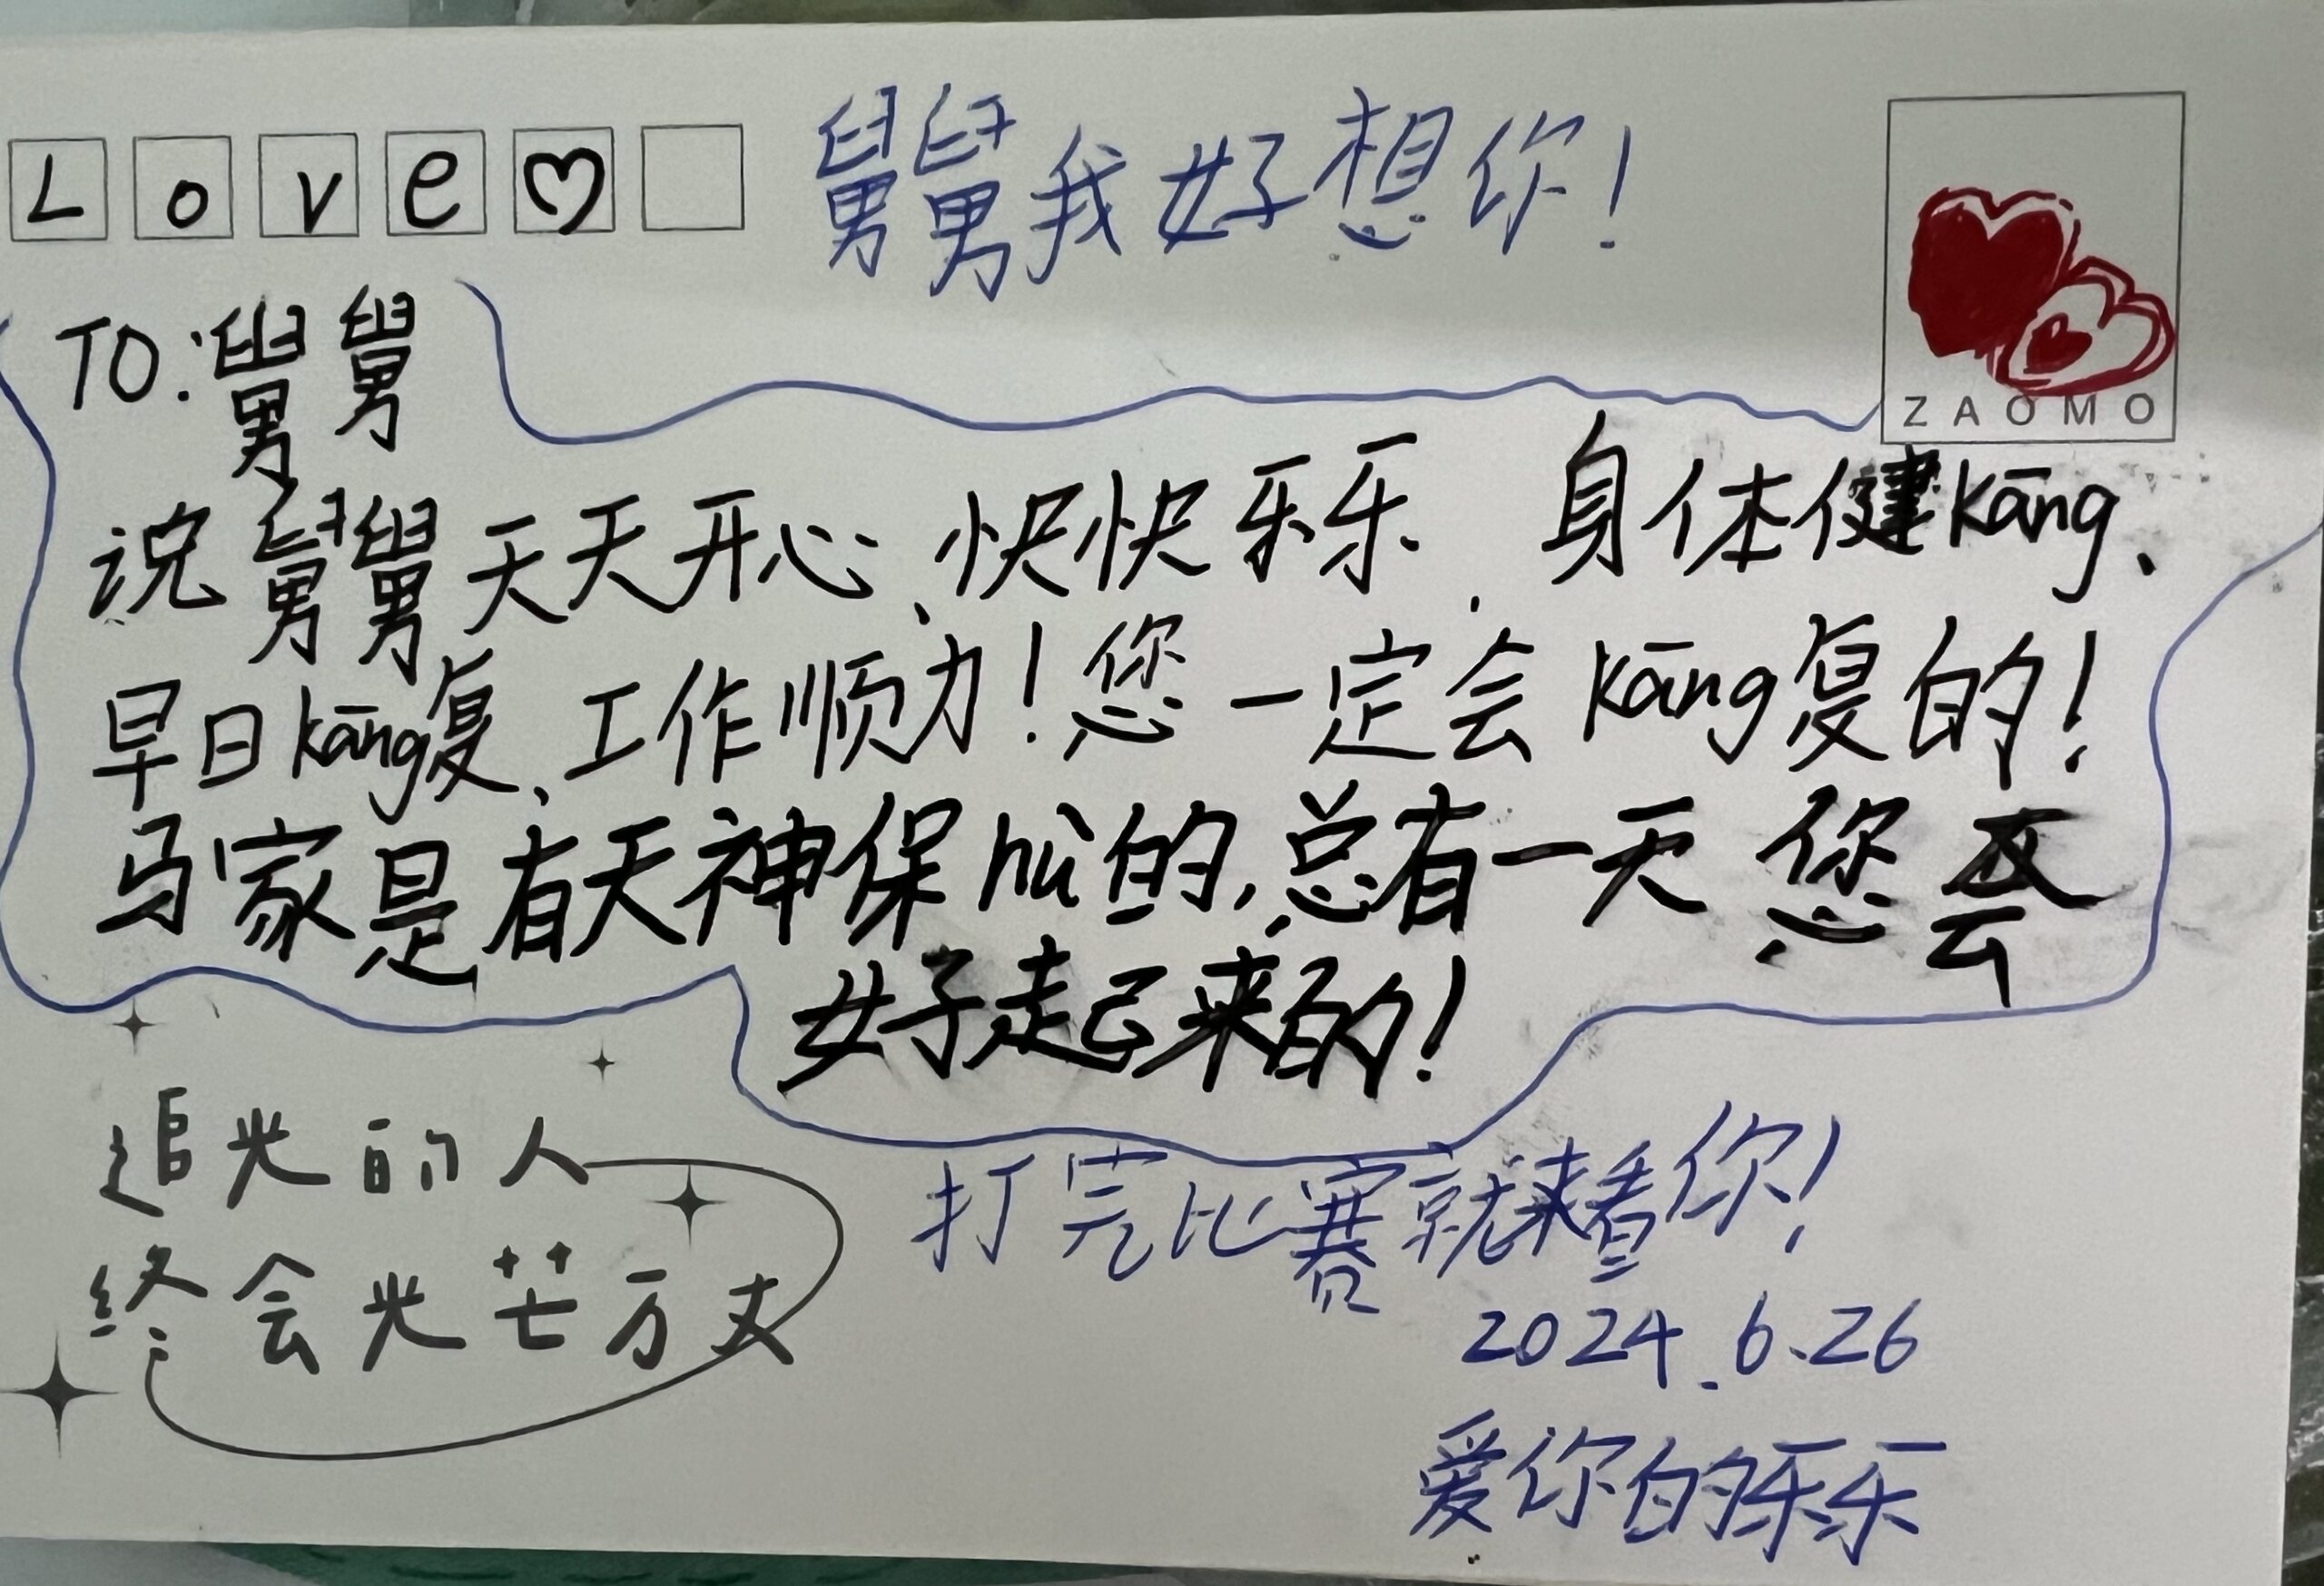 Love♡
舅舅我好想你!
ZAOMO
TO:舅舅
说舅舅天天开心、快快乐乐、身体健kāng、
早日kāng复、工作顺力!您一定会kāng复的!
马家是有天神保hù的,总有一天您会
好起来的!
追光的人
终会光芒万丈
打完比赛就来看你!
2024.6.26
爱你的乐乐